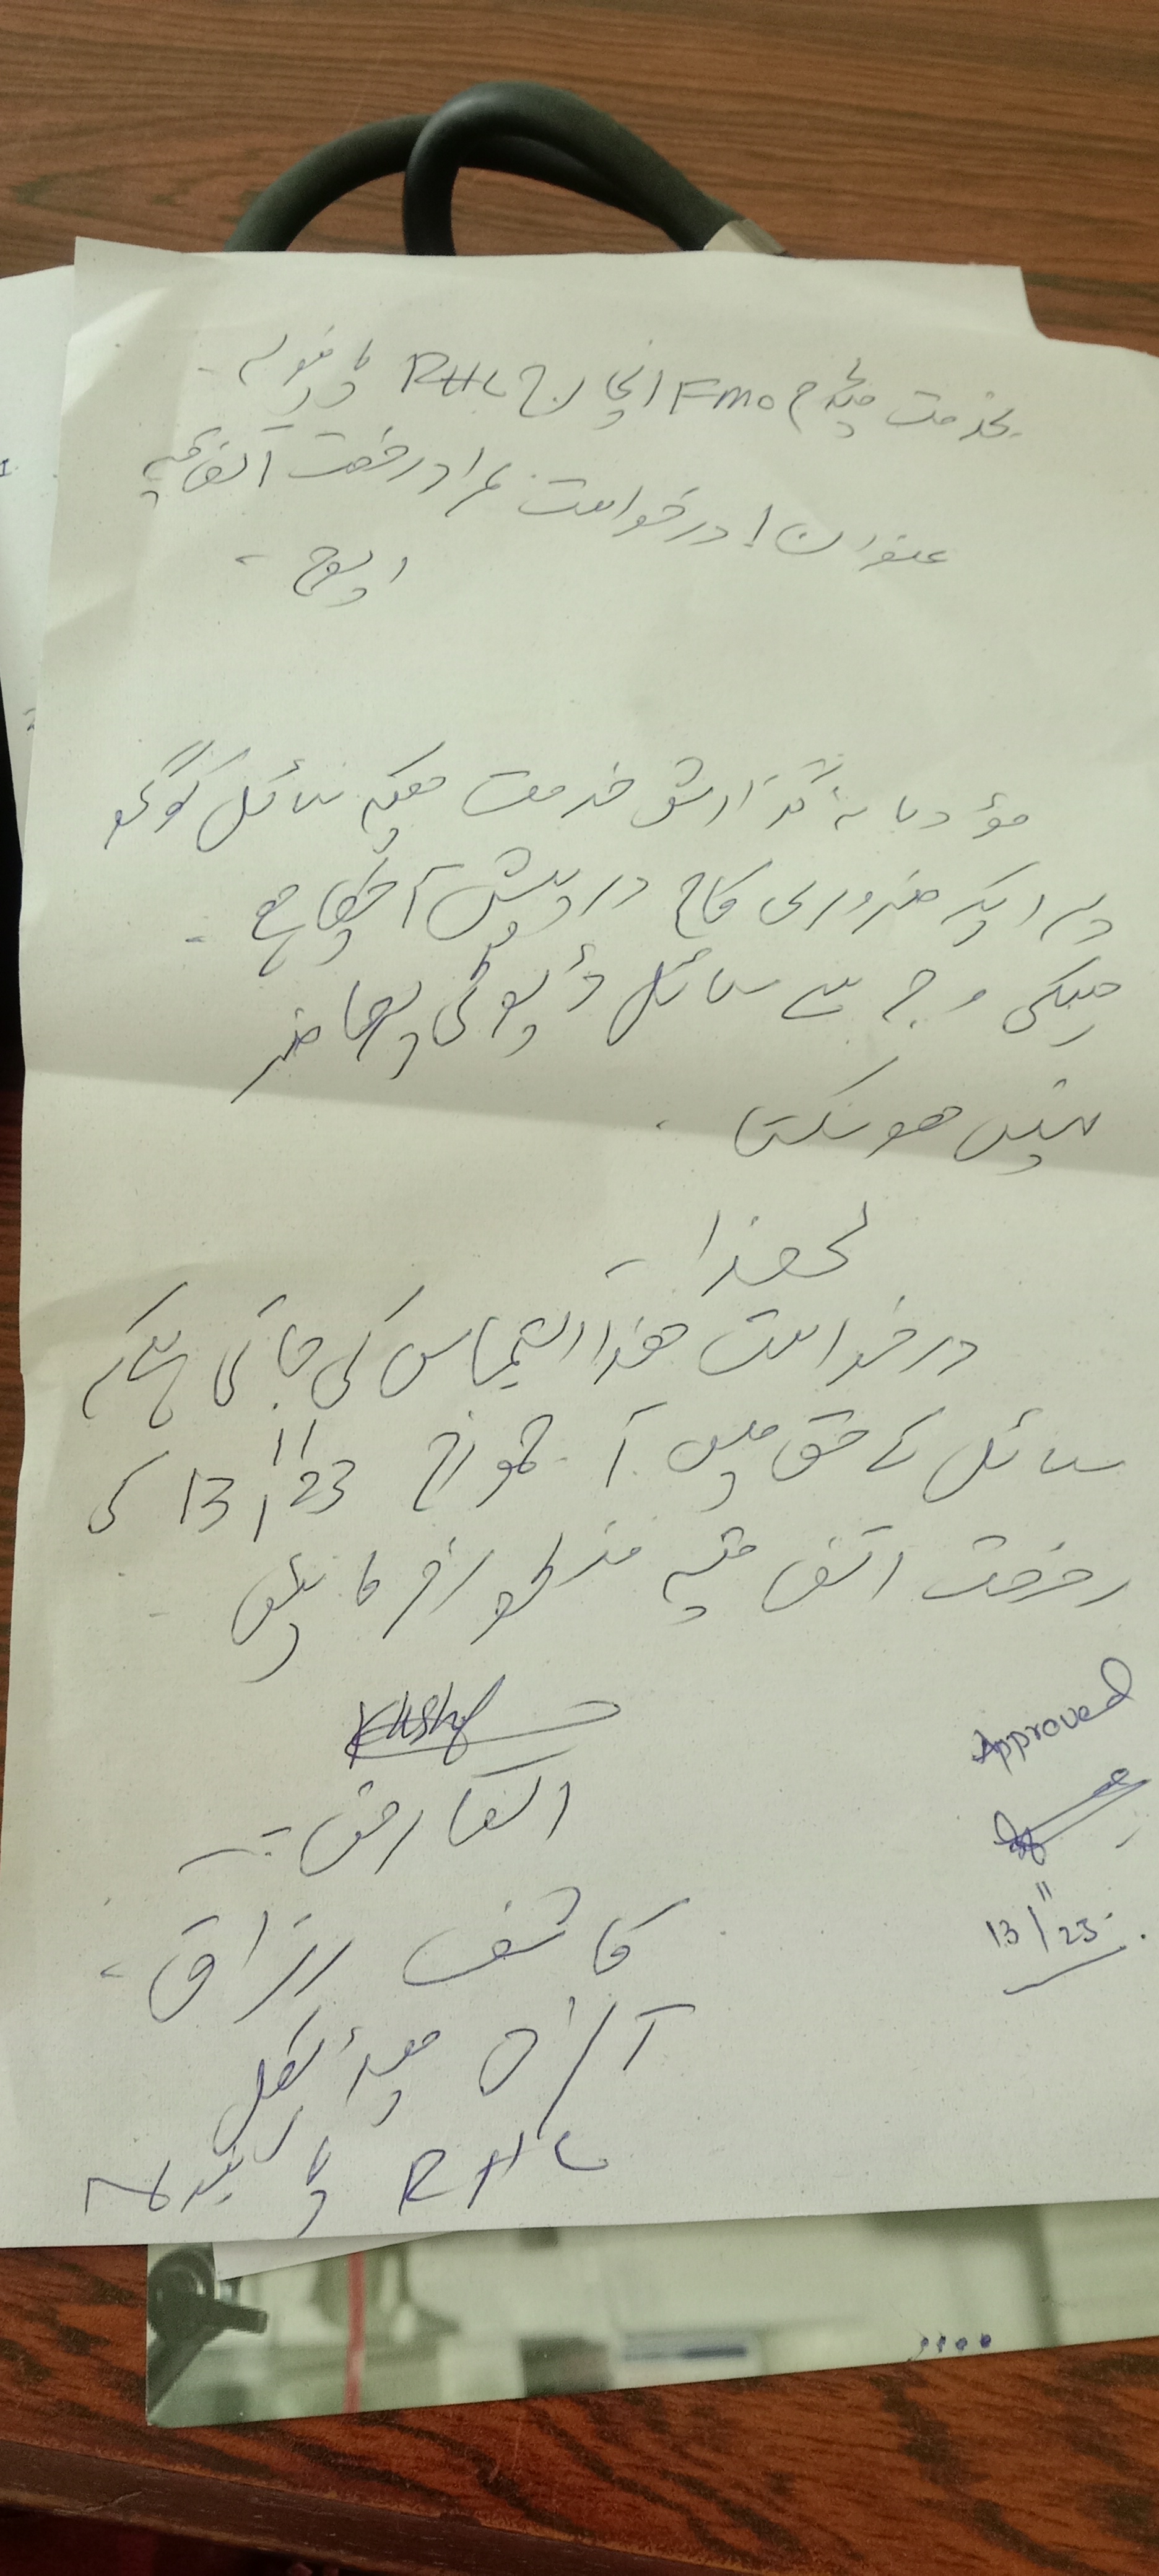 بخدمت میڈم FMO انچارج RHC
عنوان! درخواست براۓ رخصت اتفاقیہ
ایوم -
مؤدبانہ گزارش خدمت ہیکہ سائل کو گھر
پر ایک ضروری کام درپیش آ گیا ہے -
جسکی وجہ سے سائل ڈیوٹی پر حاضر
نہیں ہو سکتا -
لحٰذا -
درخواست ھذا التماس کی جاتی ہیکہ
سائل کے حق میں آج مورخہ 13/11/23 کی
رخصت اتفاقیہ منظور فرمائیں -
Kashif
العارض :-
کاشف رزاق -
آف میڈیکل
RHC
Approved
13/11/23